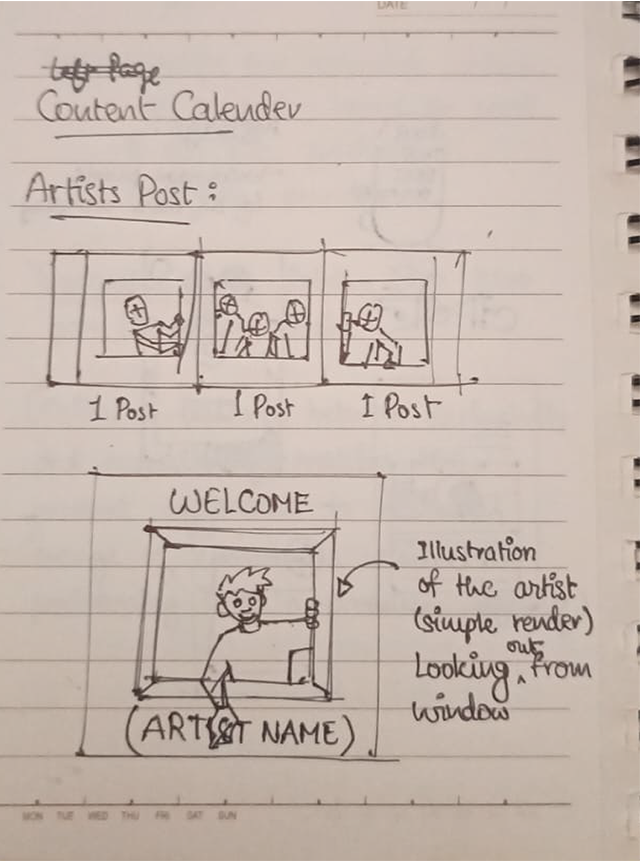 DATE / /
Left Page
Content Calender
Artists Post :
1 Post 1 Post 1 Post
WELCOME
Illustration
of the artist
(simple render)
Looking out from
window
(ARTIST NAME)
MON TUE WED THU FRI SAT SUN